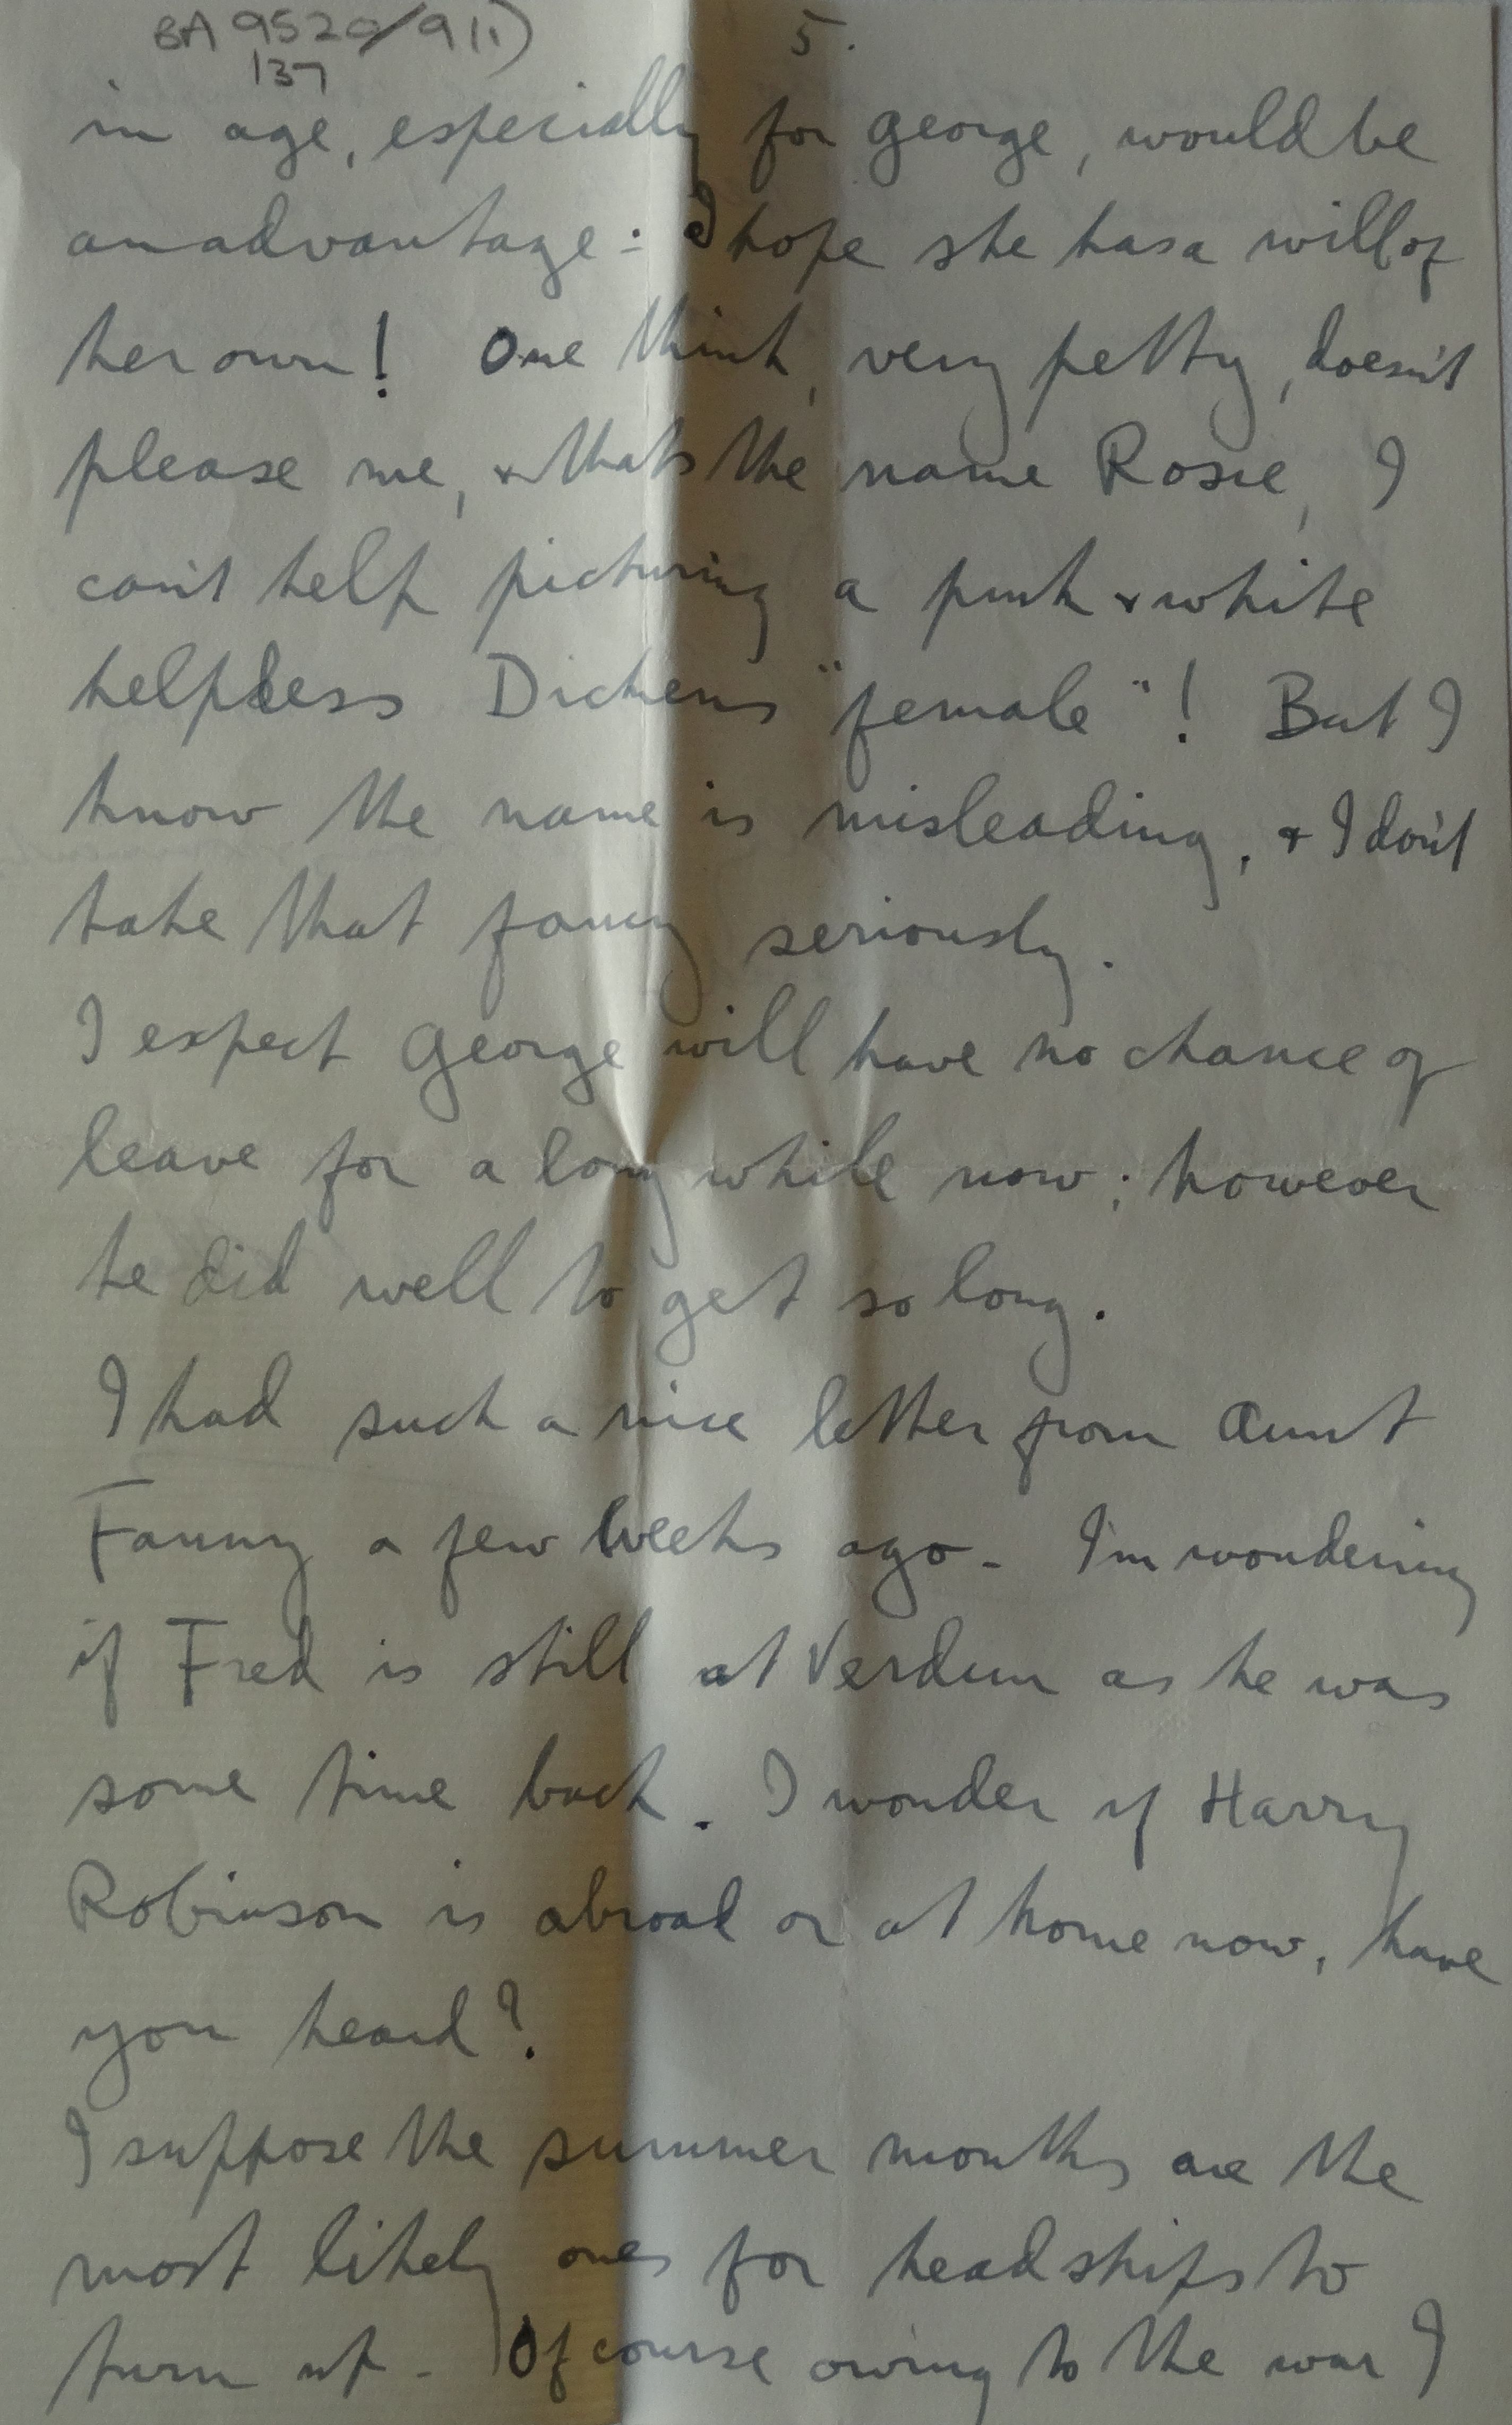 BA 9520/9(1)
137
5.
in age, especially for George, would be
an advantage :- I hope she has a will of
her own! One think, very petty, doesn't
please me, & thats the name Rosie, I
can't help picturing a pink & white
helpless Dickens "female"! But I
know the name is misleading, & I don't
take that fancy seriously.
I expect George will have no chance of
leave for a long while now; however
he did well to get so long.
I had such a nice letter from Aunt
Fanny a few weeks ago - I'm wondering
if Fred is still at Verdun as he was
some time back. I wonder if Harry
Robinson is abroad or at home now, have
you heard?
I suppose the summer months are the
most likely ones for headships to
turn up - Of course owing to the war I